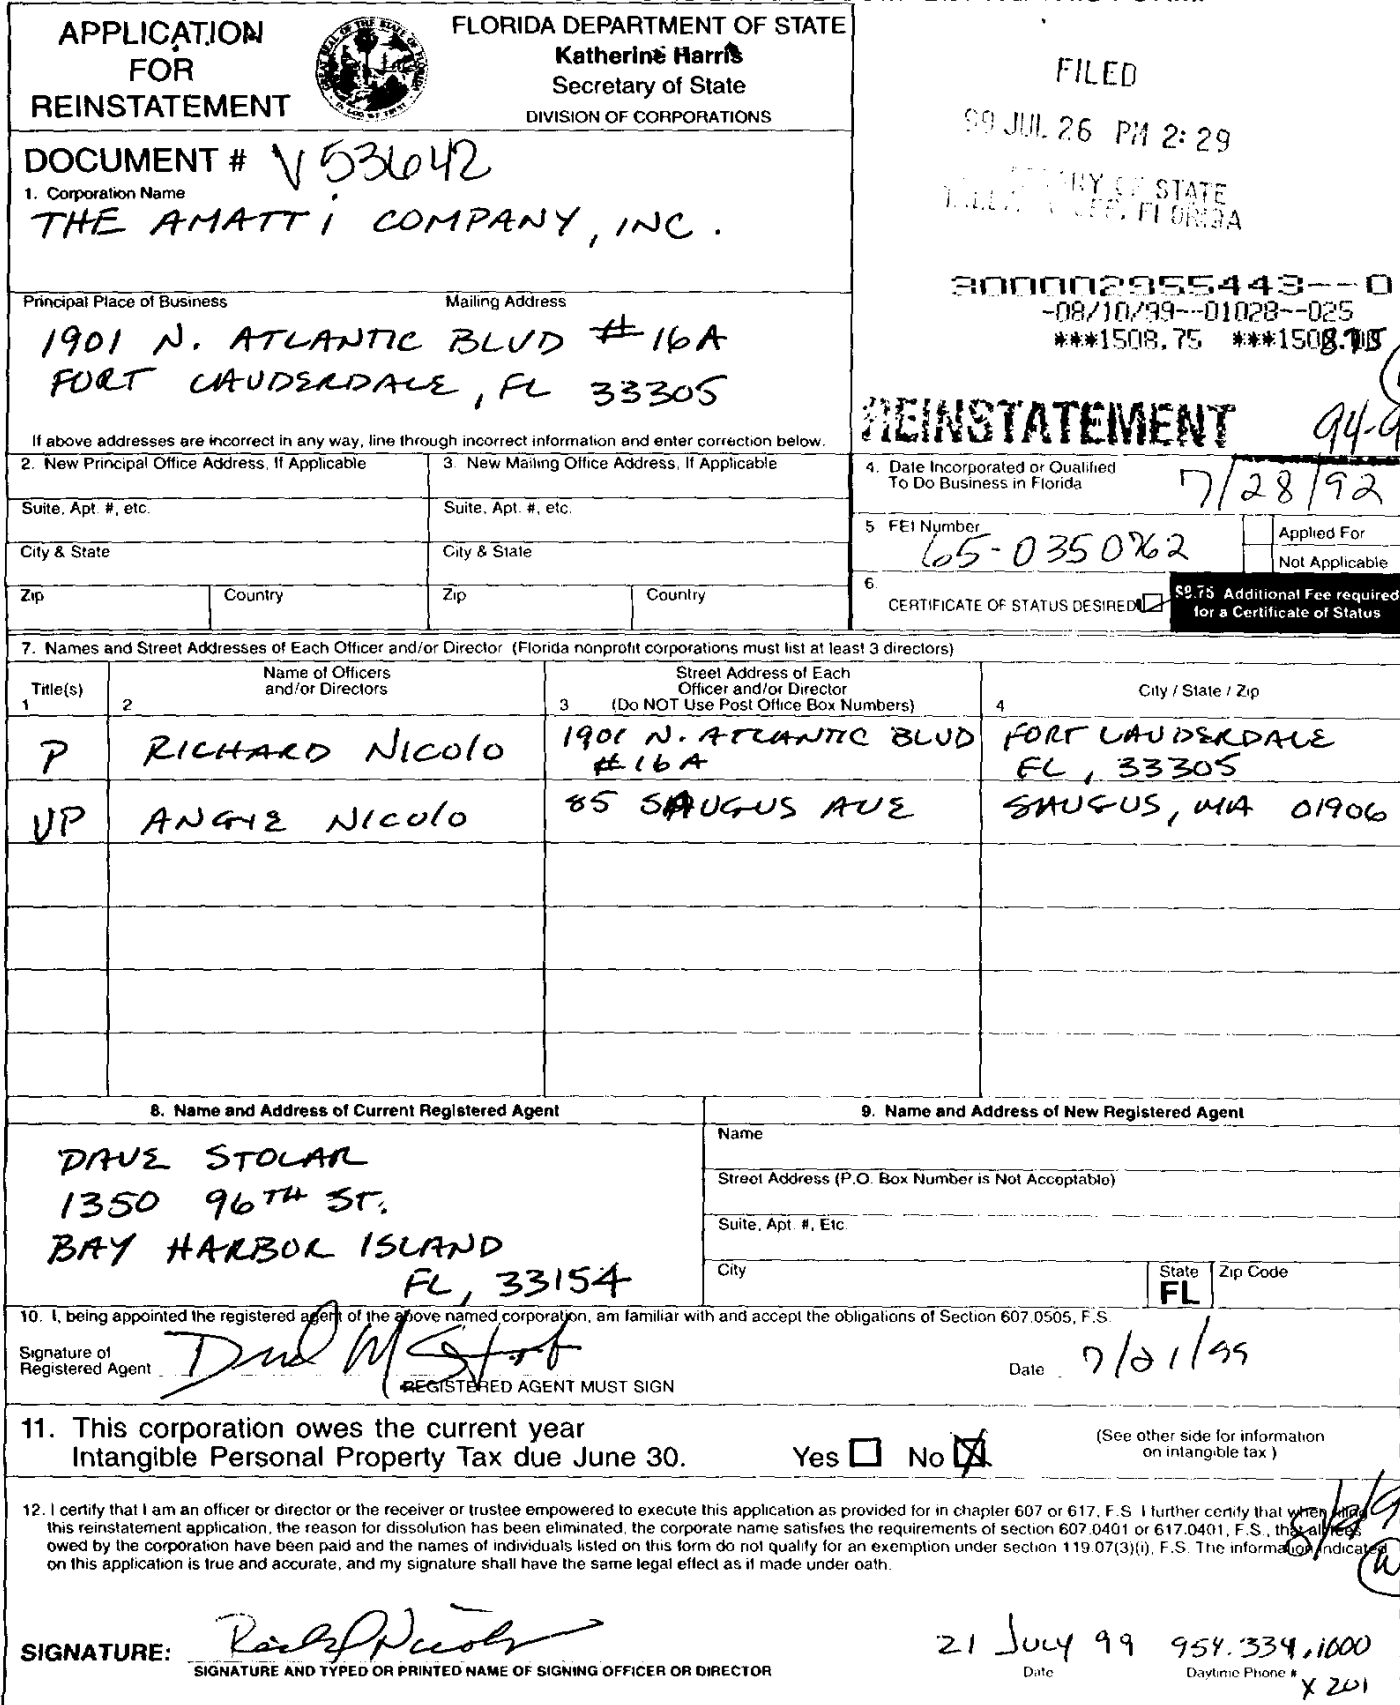 APPLICATION
FOR
REINSTATEMENT
FLORIDA DEPARTMENT OF STATE
Katherine Harris
Secretary of State
DIVISION OF CORPORATIONS
FILED
99 JUL 26 PM 2:29
OF STATE
FLORIDA
DOCUMENT # V53642
1. Corporation Name
THE AMATTi COMPANY, INC.
300002955443--0
-08/10/99--01028--025
***1508.75 ***1508.75
Principal Place of Business Mailing Address
1901 N. ATLANTIC BLVD #16A
FORT LAUDERDALE, FL 33305
If above addresses are incorrect in any way, line through incorrect information and enter correction below.
REINSTATEMENT
2. New Principal Office Address, If Applicable
3. New Mailing Office Address, If Applicable
Suite, Apt. #, etc.
Suite, Apt. #, etc.
City & State
City & State
Zip Country
Zip Country
4. Date Incorporated or Qualified
To Do Business in Florida
7/28/92
5 FEI Number
65-0350762
Applied For
Not Applicable
6.
CERTIFICATE OF STATUS DESIRED
$8.75 Additional Fee required
for a Certificate of Status
7. Names and Street Addresses of Each Officer and/or Director (Florida nonprofit corporations must list at least 3 directors)
Title(s)
1
Name of Officers
and/or Directors
2
Street Address of Each
Officer and/or Director
3 (Do NOT Use Post Office Box Numbers)
City / State / Zip
4
P RICHARD NICOLO 1901 N. ATLANTIC BLVD FORT LAUDERDALE
#16A FL, 33305
VP ANGIE NICOLO 85 SAUGUS AVE SAUGUS, MA 01906
8. Name and Address of Current Registered Agent
DAVE STOLAR
1350 96TH ST.
BAY HARBOR ISLAND
FL, 33154
9. Name and Address of New Registered Agent
Name
Street Address (P.O. Box Number is Not Acceptable)
Suite, Apt. #, Etc.
City
State
FL
Zip Code
10. I, being appointed the registered agent of the above named corporation, am familiar with and accept the obligations of Section 607.0505, F.S.
Signature of
Registered Agent
REGISTERED AGENT MUST SIGN
Date 7/21/99
11. This corporation owes the current year
Intangible Personal Property Tax due June 30.
Yes No
(See other side for information
on intangible tax )
12. I certify that I am an officer or director or the receiver or trustee empowered to execute this application as provided for in chapter 607 or 617, F.S I further certify that when filing
this reinstatement application, the reason for dissolution has been eliminated, the corporate name satisfies the requirements of section 607.0401 or 617.0401, F.S., that all fees
owed by the corporation have been paid and the names of individuals listed on this form do not qualify for an exemption under section 119.07(3)(i), F.S. The information indicated
on this application is true and accurate, and my signature shall have the same legal effect as if made under oath.
SIGNATURE:
SIGNATURE AND TYPED OR PRINTED NAME OF SIGNING OFFICER OR DIRECTOR
21 JULY 99
Date
954.334.1000
Daytime Phone #
X 201